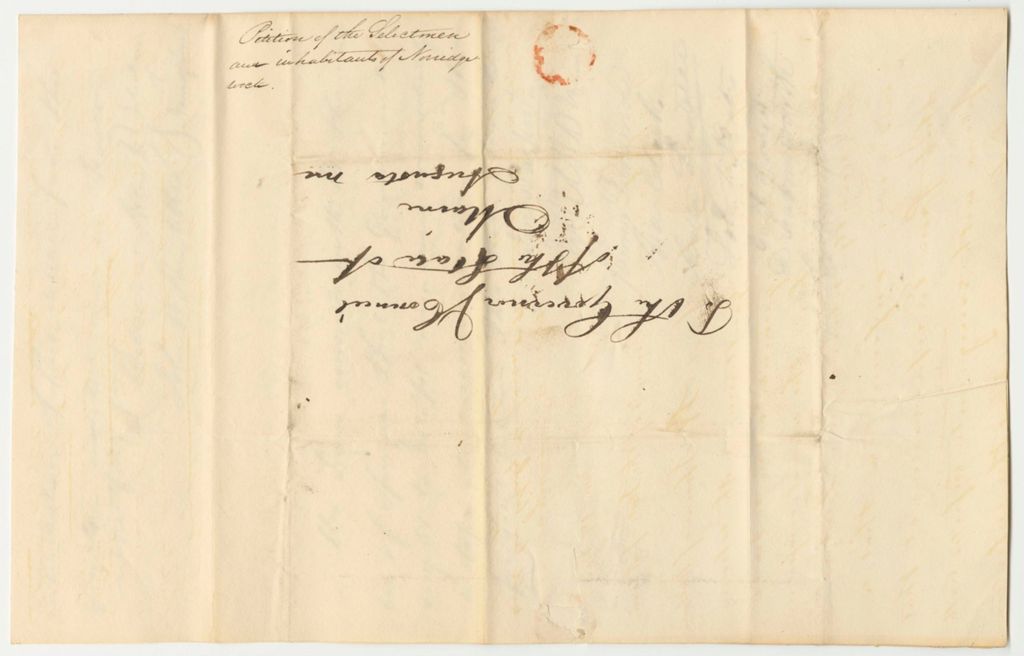 Petition of the Selectmen
and inhabitants of Norridge
wock.
To the Governor & Council
of the State of
Maine
Augusta Me